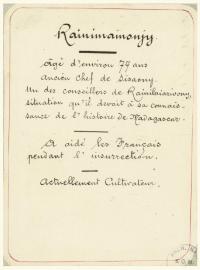 Rainimamonjy
Agé d'environ 79 ans
ancien chef de Sisaony.
Un des conseillers de Rainilaiarivony,
situation qu'il devait à sa connais-
sance de l'histoire de Madagascar.
A aidé les Français
pendant l'insurrection.
Actuellement Cultivateur.